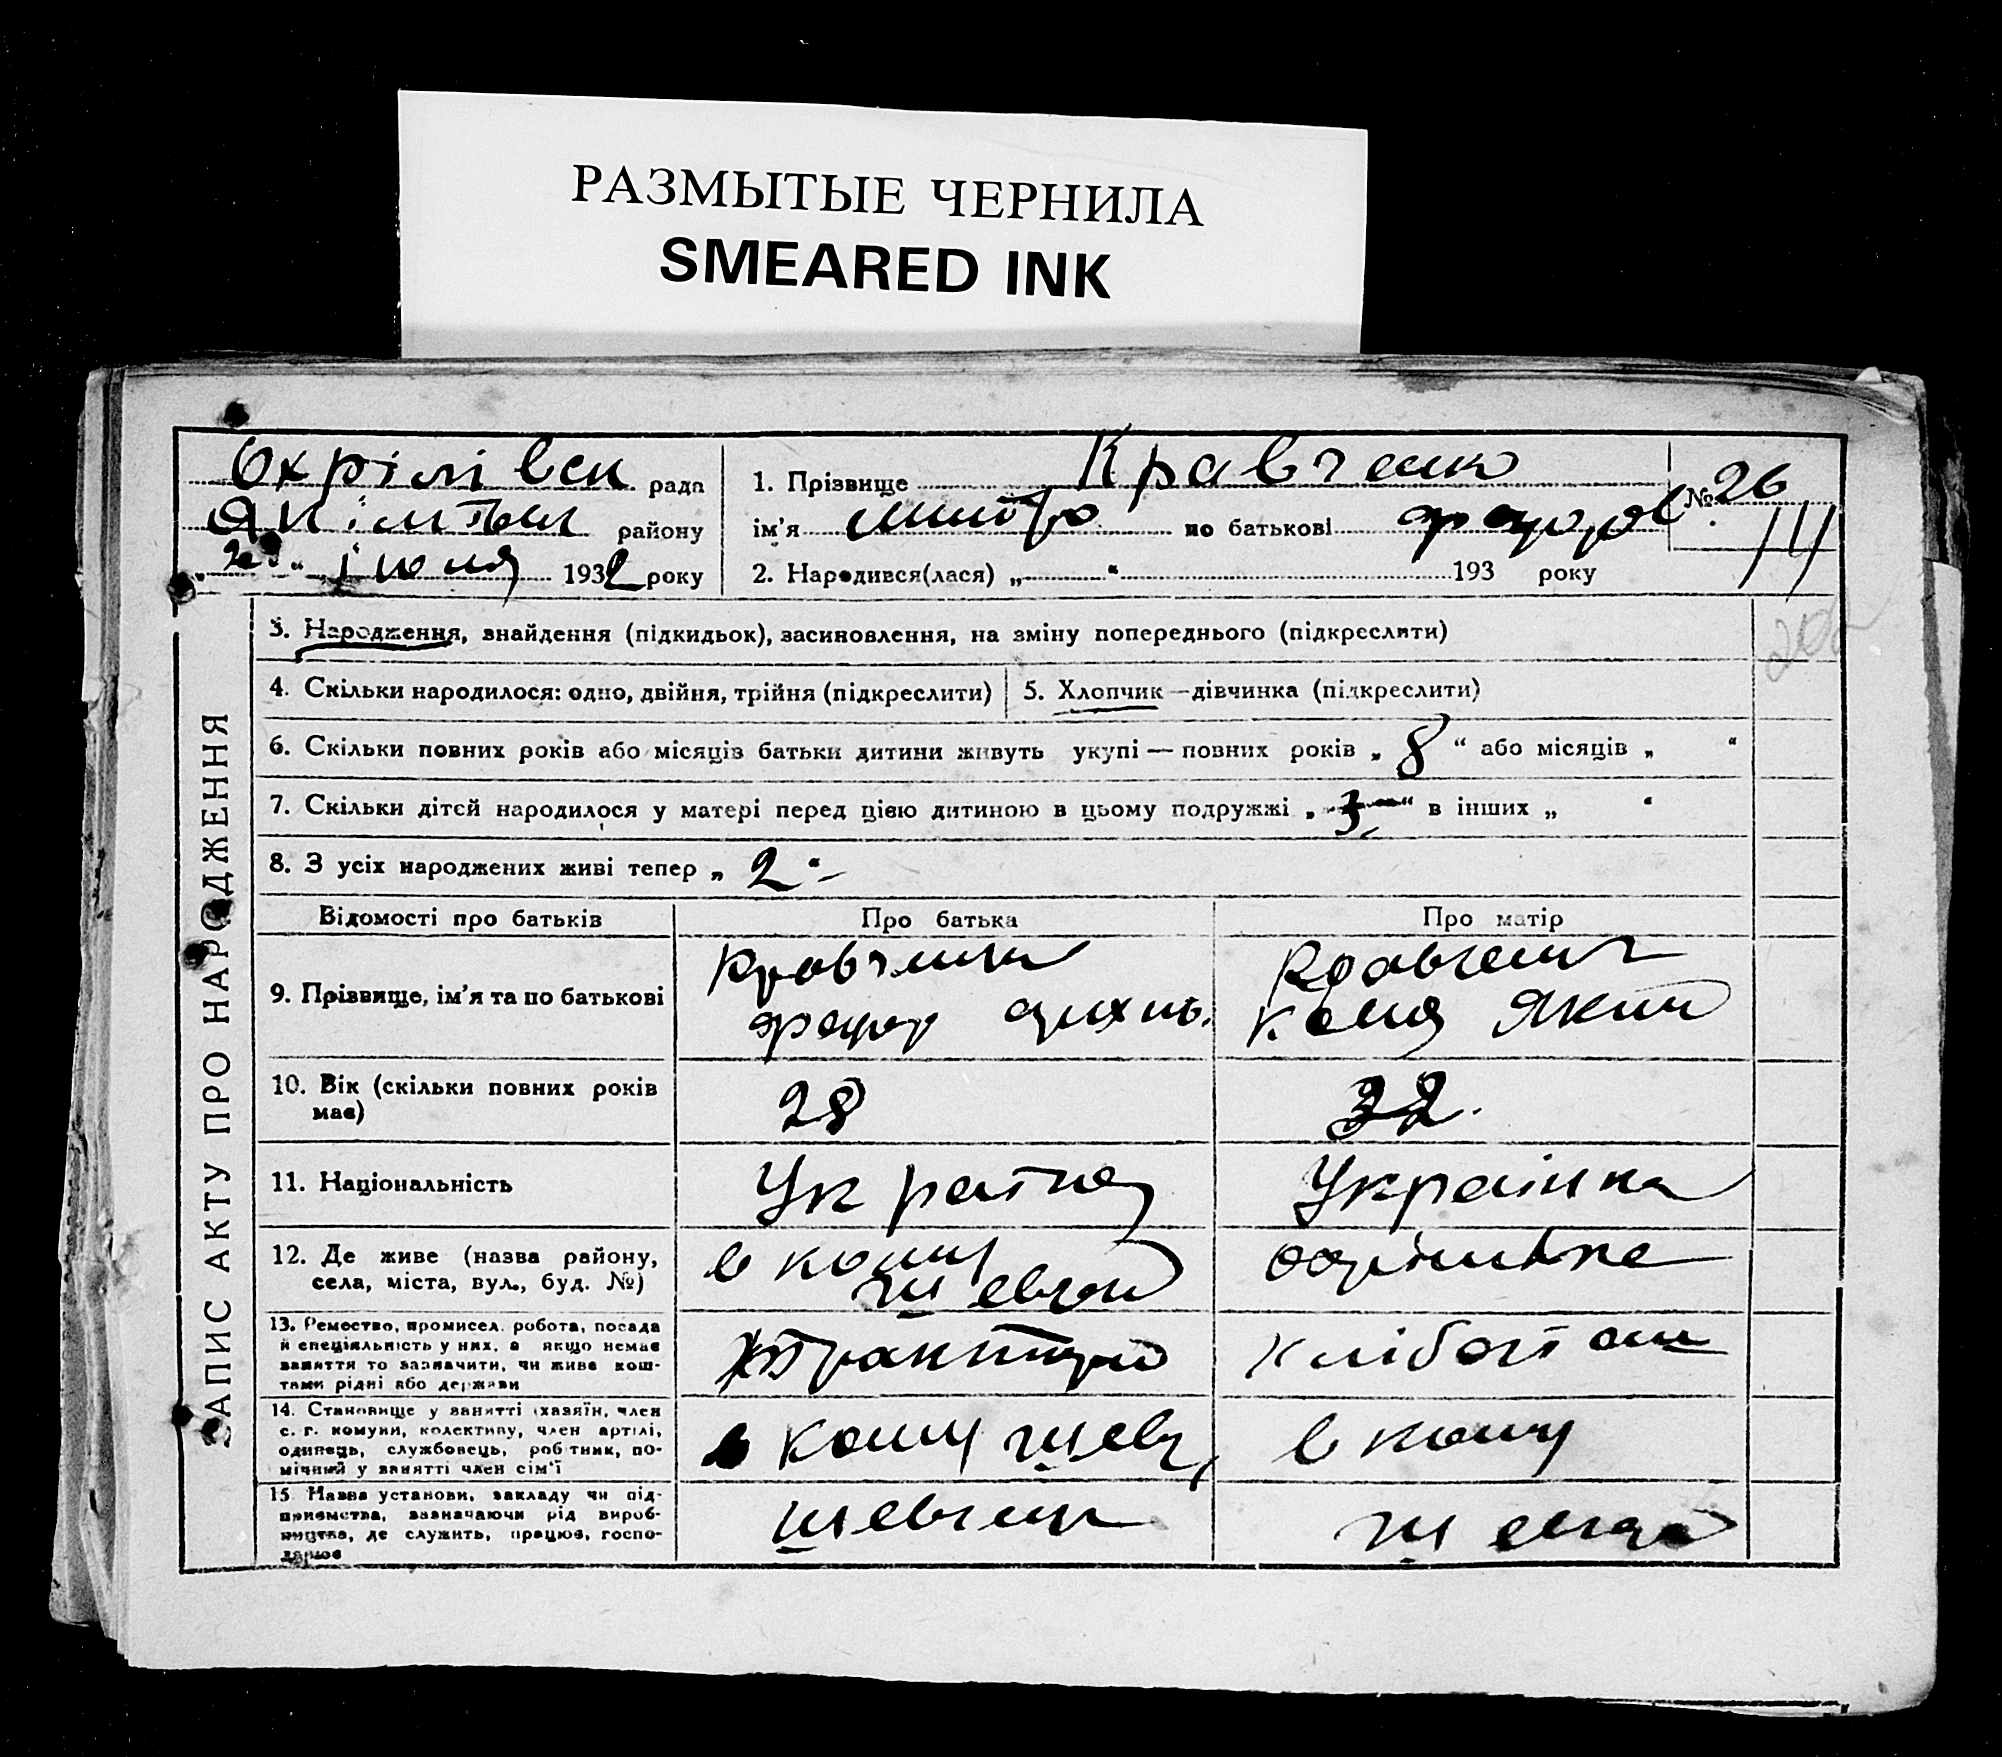 РАЗМЫТЫЕ ЧЕРНИЛА
SMEARED INK
Охрімівск рада
Якімів району
" июля 1932 року
1. Прізвище Кравченко
ім'я Митро по батькові Федоров
2. Народився(лася) „ “ 193 року
№ 26
ЗАПИС АКТУ ПРО НАРОДЖЕННЯ
3. Народження, знайдення (підкидьок), засиновлення, на зміну попереднього (підкреслити)
4. Скільки народилося: одно, двійня, трійня (підкреслити)
5. Хлопчик—дівчинка (підкреслити)
6. Скільки повних років або місяців батьки дитини живуть укупі — повних років „ 8 “ або місяців „ “
7. Скільки дітей народилося у матері перед цією дитиною в цьому подружжі „ 3 “ в інших „ “
8. З усіх народжених живі тепер „ 2 “
Відомості про батьків
Про батька
Про матір
9. Прізвище, ім'я та по батькові
Кравченко
Федор
Кравченко
Яким
10. Вік (скільки повних років
має)
28
32.
11. Національність
Українец
Українка
12. Де живе (назва району,
села, міста, вул., буд. №)
в кому
Шевчен
Охрімівке
13. Ремество, промисел, робота, посада
й спеціяльність у них, а якщо немає
заняття то зазначити, чи живе кош-
тами рідні або держави
14. Становище у занятті (хазяїн, член
с. г. комуни, колективу, член артілі,
одинець, службовець, робітник, по-
мічний у занятті член сім'ї
в кому Шевч
в кому
15. Назва установи, закладу чи під-
приємства, зазначаючи рід вироб-
ництва, де служить, працює, госпо-
дарює
Шевченк